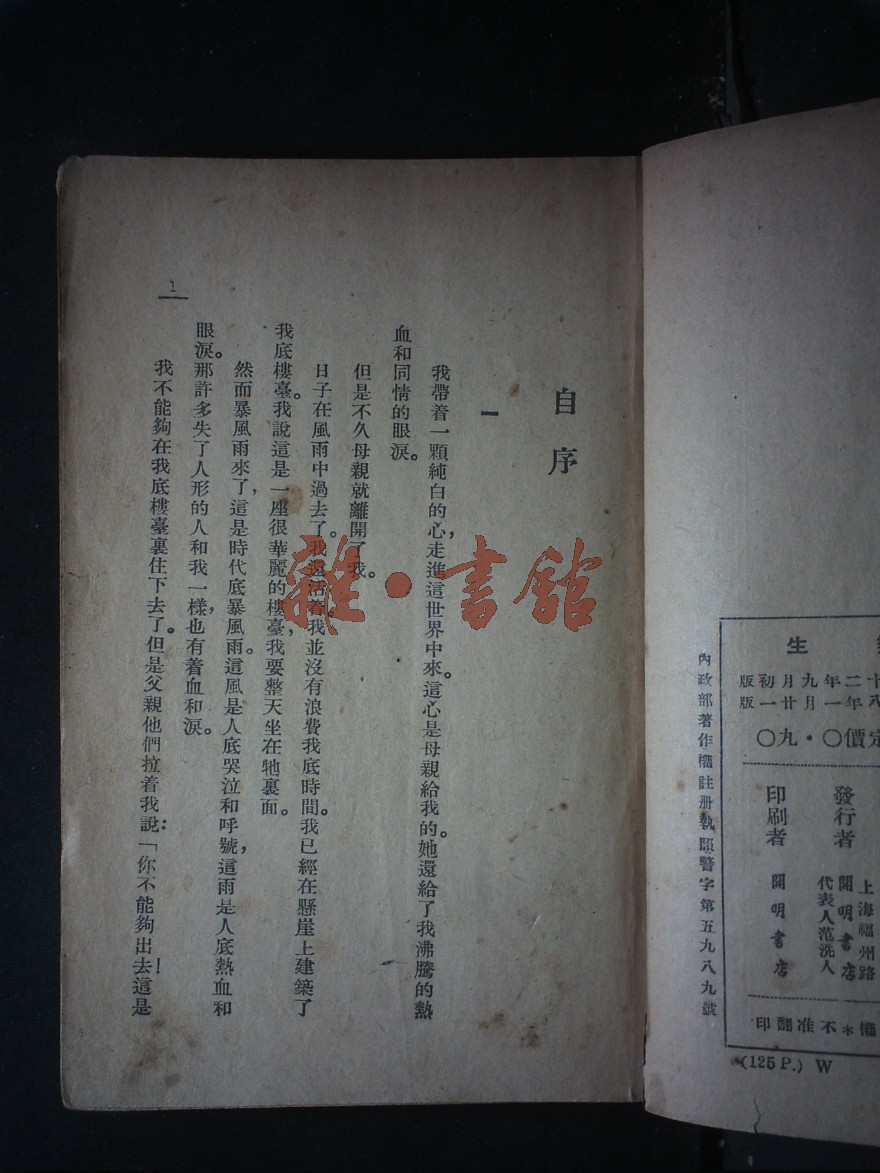 生
十二年九月初版
八年一月廿一版
定價〇·九〇
發行者
上海福州路
開明書店
代表人范洗人
印刷者
開明書店
權*不准翻印
(125 P.) W
內政部著作權註册執照警字第五九八九號
自序
一
我帶着一顆純白的心，走進這世界中來。這心是母親給我的。她還給了我沸騰的熱
血和同情的眼淚。
但是不久母親就離開了我。
日子在風雨中過去了。我還活着。我並沒有浪費我底時間。我已經在懸崖上建築了
我底樓臺。我說這是一座很華麗的樓臺，我要整天坐在牠裏面。
然而暴風雨來了，這是時代底暴風雨。這風是人底哭泣和呼號，這雨是人底熱血和
眼淚。那許多失了人形的人和我一樣，也有着血和淚。
我不能夠在我底樓臺裏住下去了。但是父親他們拉着我說：「你不能夠出去！這是
1
雜·書館